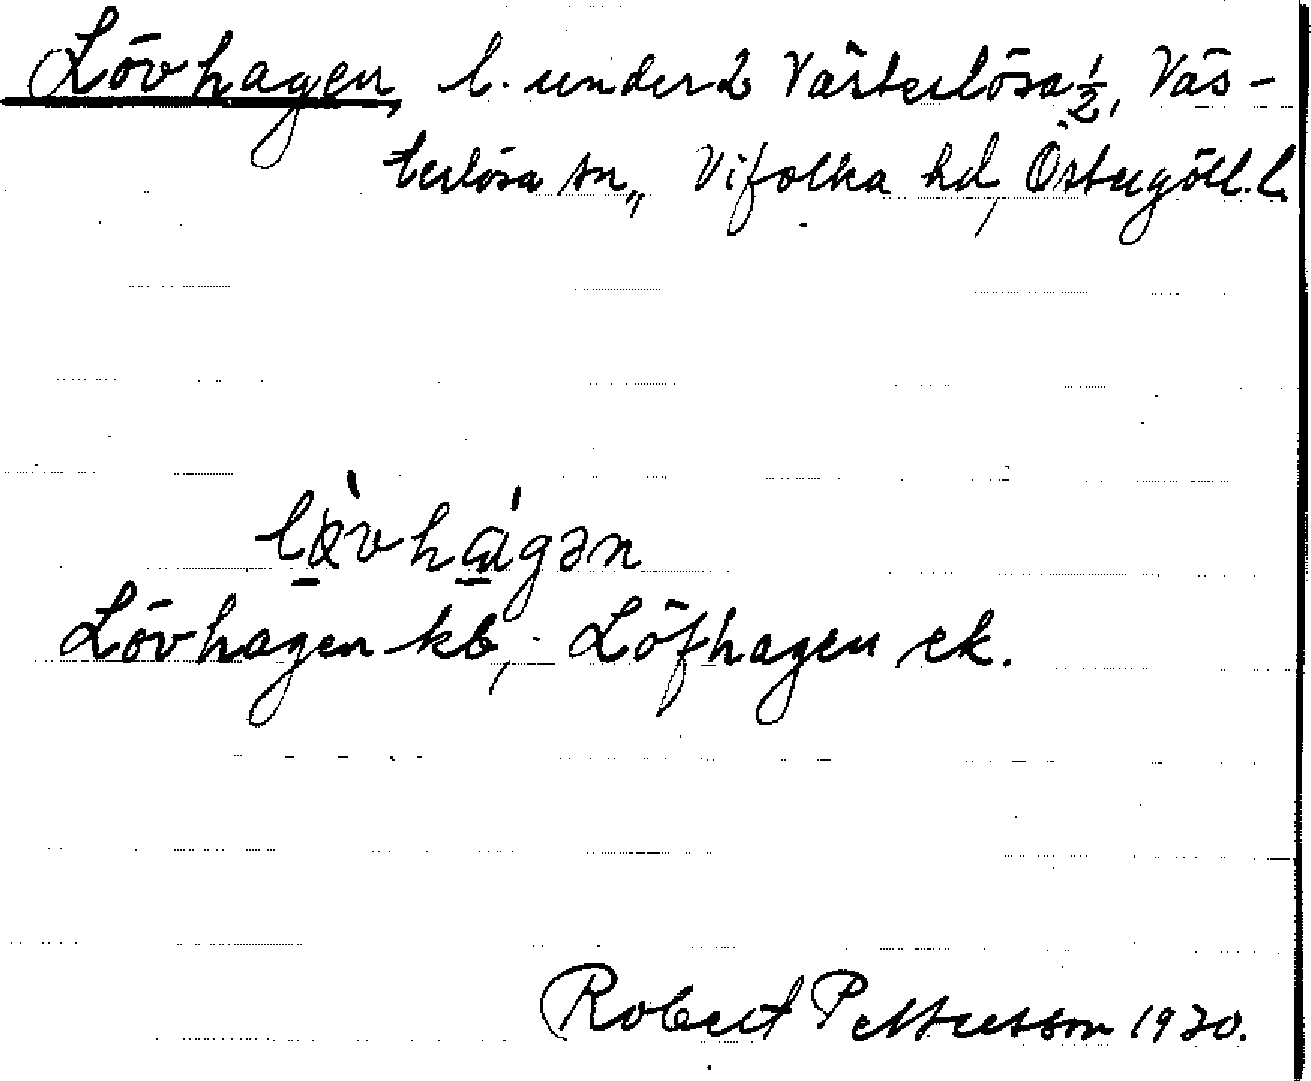 Lövhagen, l. under 2 Västerlösa ½, Väs-
terlösa sn,, Vifolka hd, Östergötl. l.
lø̀vhágən
Lövhagen kb, Löfhagen ek.
Robert Pettersson 1920.